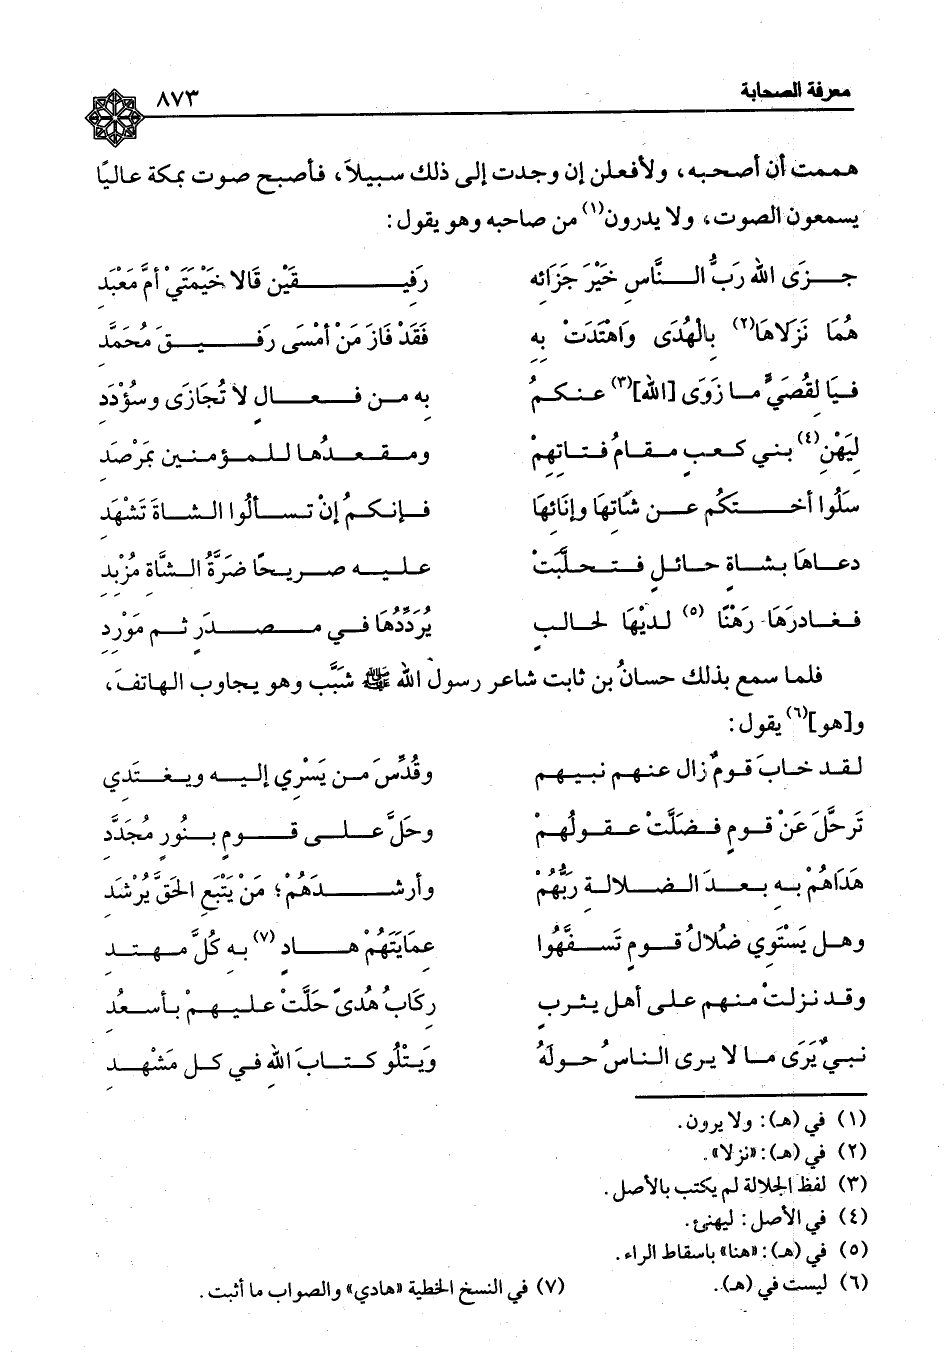 معرفة الصحابة ٨٧٣
هممت أن أصحبه، ولأفعلن إن وجدت إلى ذلك سبيلاً، فأصبح صوت بمكة عاليًا
يسمعون الصوت، ولا يدرون(١) من صاحبه وهو يقول:
جـزَى الله رَبُّ الـنَّاسِ خَيْرَ جَزَائه رَفيـقَيْن قَالا خَيْمَتَيْ أمِّ مَعْبَد
هُمَا نَزَلاهَا(٢) بِالْهُدَى وَاهْتَدَتْ بِهِ فَقَدْ فَازَ مَنْ أمْسَى رَفـيـقَ مُحَمَّدِ
فـيَا لقُصَيٍّ مـا زَوَى [الله](٣) عـنكـمُ به مـن فـعـالٍ لا تُجَازَى وسؤْدَدِ
لِيَهْنِ(٤) بـني كـعـبٍ مـقـامُ فـتـاتِهِمْ ومـقـعـدُهـا لـلـمـؤمـنـين بمَرْصَدِ
سَلُوا أخـتـكُم عـن شَاتِهَا وإنَائِهَا فـإنـكـمُ إنْ تـسـألُوا الـشـاةَ تَشْهَدِ
دعـاهَا بـشـاةٍ حـائـلٍ فـتـحـلَّبَتْ عـلـيـه صـريـحًا ضَرَّةُ الـشَّاة مُزْبِدِ
فـغـادرَهَا رَهْنًا (٥) لـديْهَا لحـالـبٍ يُرَدِّدُهَا فـي مـصـدَرٍ ثـم مَوْرِدِ
فلما سمع بذلك حسانُ بن ثابت شاعر رسول الله ﷺ شَبَّب وهو يجاوب الهاتفَ،
و[هو](٦) يقول:
لـقـد خـابَ قـومٌ زال عـنهـم نـبـيهـم وقُدِّسَ مـن يَسْرِي إلـيـه ويـغـتَدي
تَرحَّلَ عَنْ قـومٍ فـضَلَّتْ عـقـولُهـمْ وحَلَّ عـلـى قـومٍ بـنُورٍ مُجَدَّدِ
هَدَاهُمْ بـه بـعـدَ الـضـلالـةِ رَبُّهُمْ وأرشـدَهُمْ؛ مَنْ يَتْبَعِ الحَقَّ يُرْشَدِ
وهـل يَسْتَوِي ضُلالُ قـومٍ تَسَفَّهُوا عمَايَتَهُمْ هـادٍ (٧) بـه كُلَّ مـهـتـدِ
وقـد نـزلـتْ مـنـهـم عـلـى أهـلِ يـثـربٍ ركَابُ هُدىً حَلَّتْ عـلـيـهـمْ بـأسـعُدِ
نـبـيٌّ يَرَى مـا لا يـرى الـناسُ حـولَهُ وَيَتْلُو كـتـابَ الله فـي كـل مَشْهَدِ
(١) في (هـ): ولا يرون.
(٢) في (هـ): «نزلا».
(٣) لفظ الجلالة لم يكتب بالأصل.
(٤) في الأصل: ليهنئ.
(٥) في (هـ): «هنا» باسقاط الراء.
(٦) ليست في (هـ). (٧) في النسخ الخطية «هادي» والصواب ما أثبت.